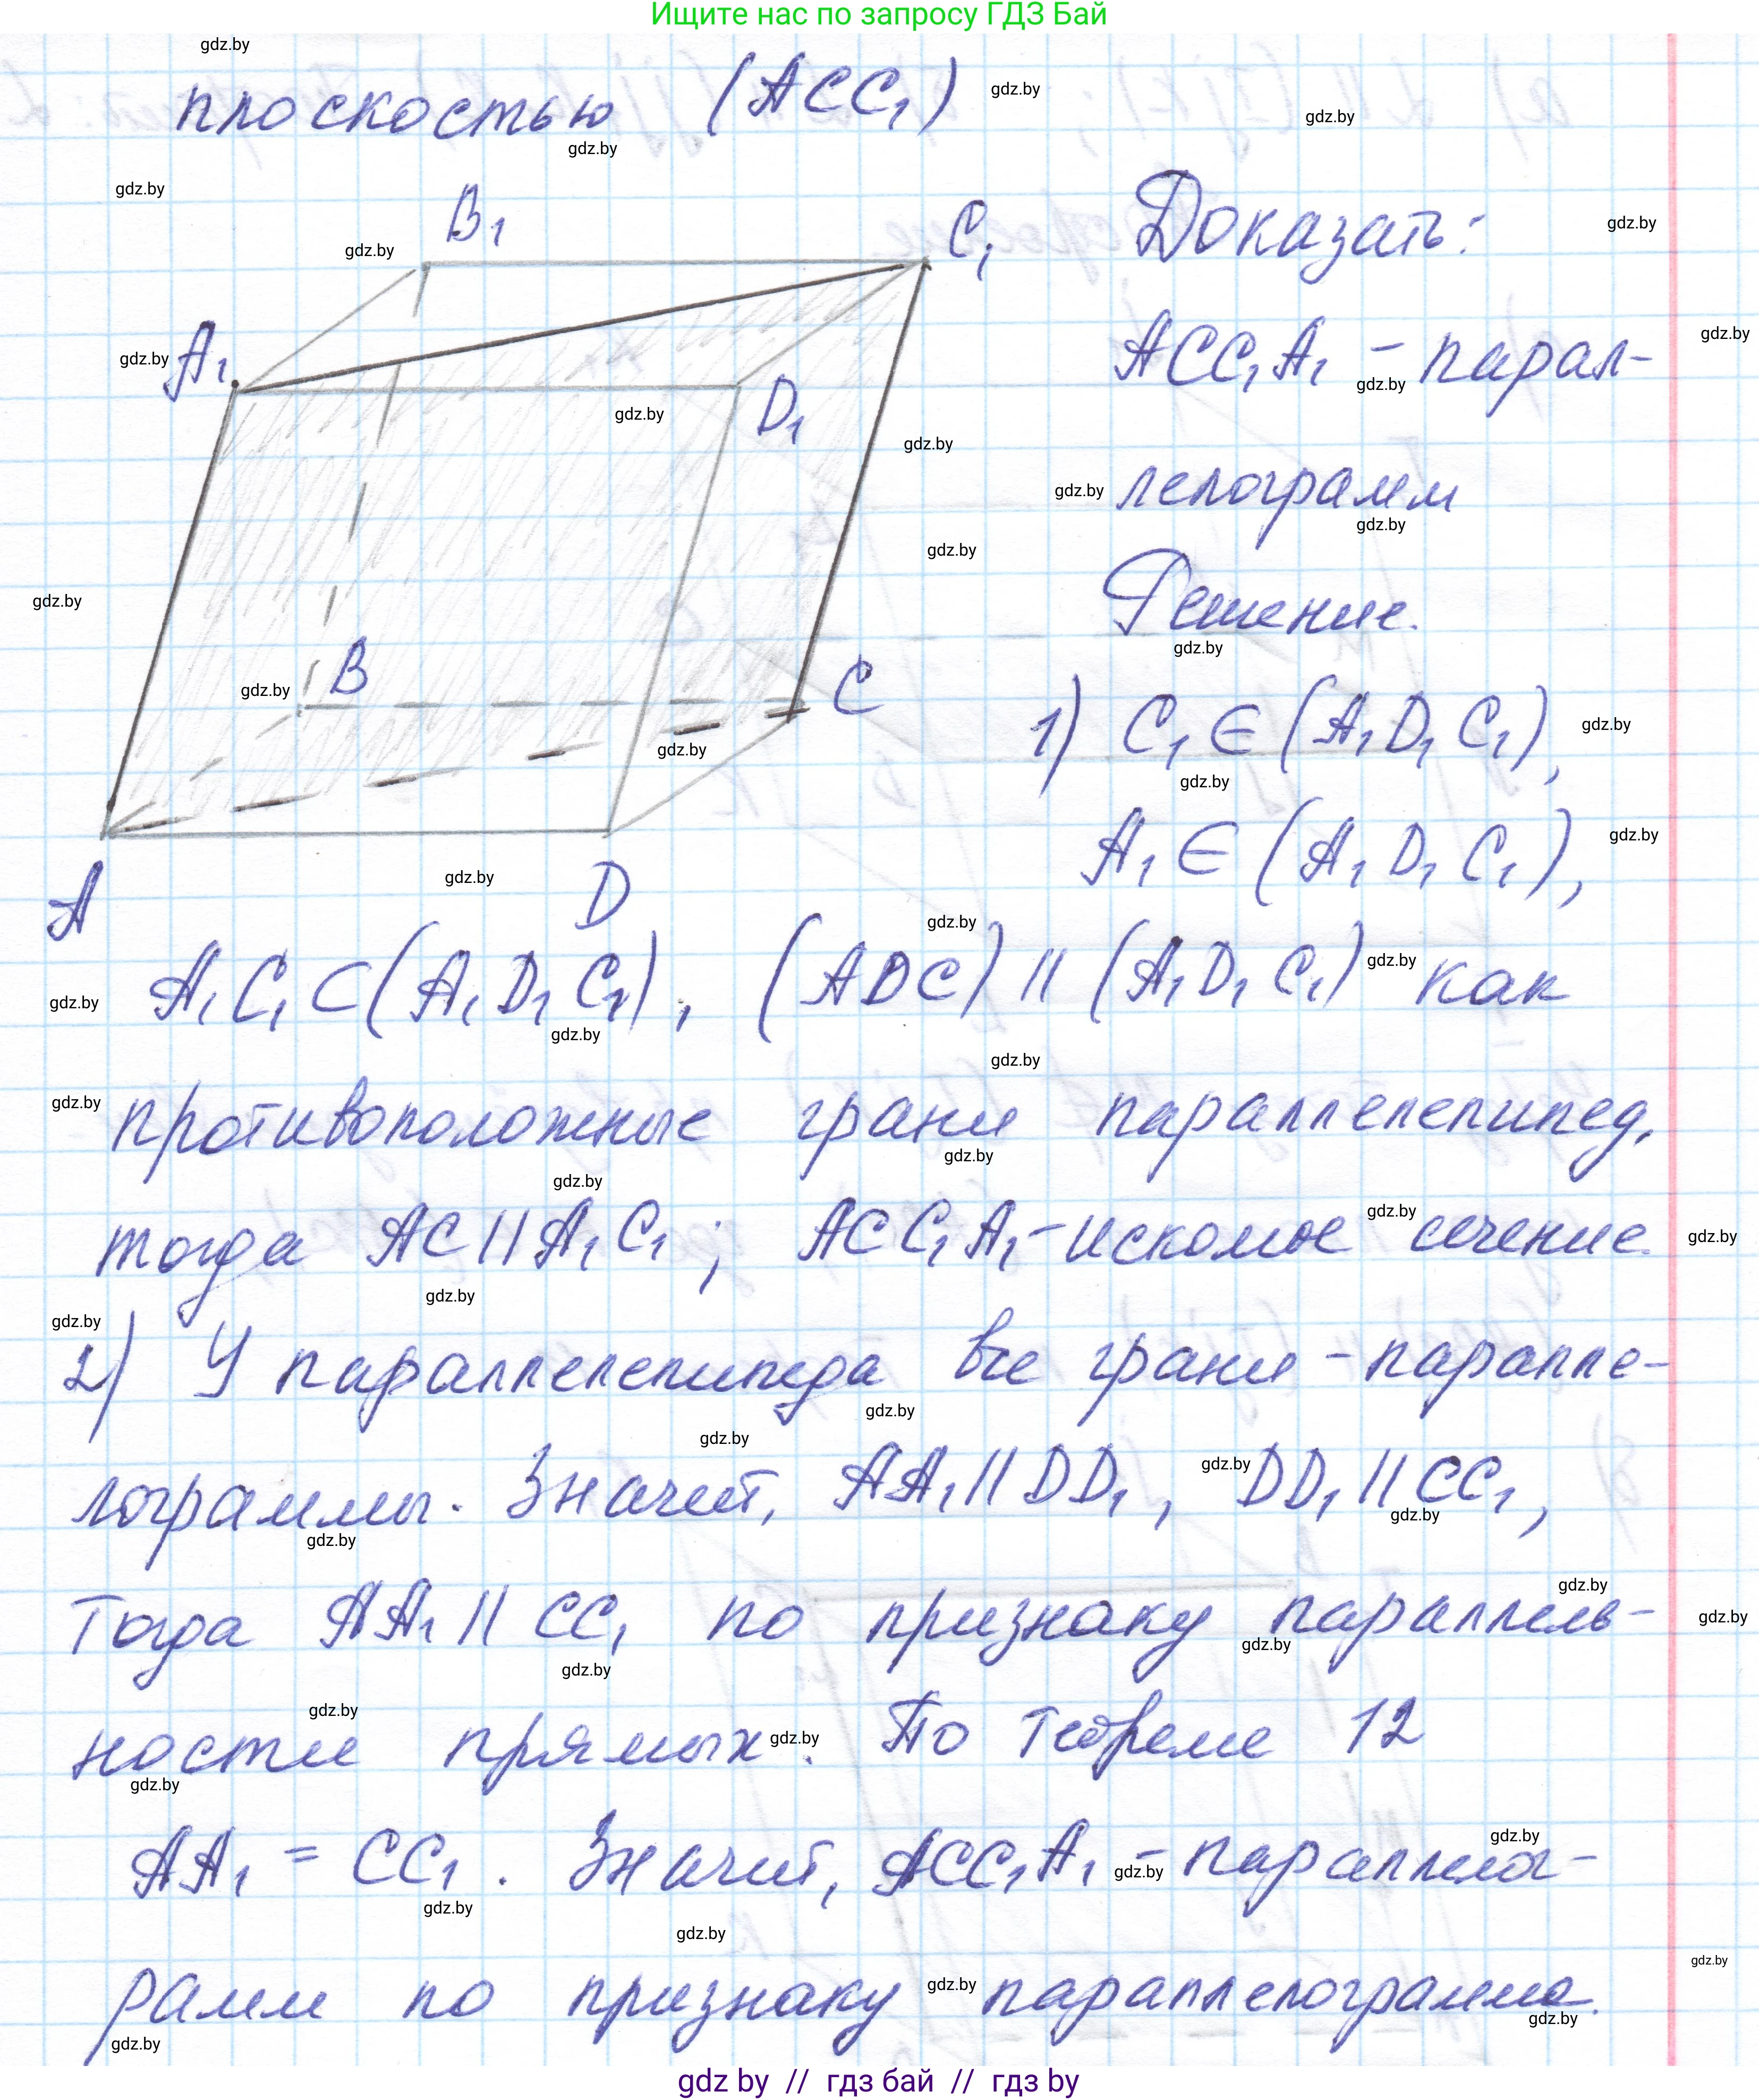 Ищите нас по запросу ГДЗ Бай
плоскостью (ACC₁)
B₁
C₁
A₁
D₁
B
C
A
D
Доказать:
ACC₁A₁ - парал-
лелограмм
Решение.
1) C₁ ∈ (A₁D₁C₁),
A₁ ∈ (A₁D₁C₁),
A₁C₁ ⊂ (A₁D₁C₁), (ADC) || (A₁D₁C₁) как
противоположные грани параллелепипед,
тогда AC || A₁C₁; ACC₁A₁ - искомое сечение.
2) У параллелепипеда все грани - паралле-
лограммы. Значит, AA₁ || DD₁, DD₁ || CC₁,
Тогда AA₁ || CC₁ по признаку параллель-
ности прямых. По теореме 12
AA₁ = CC₁. Значит, ACC₁A₁ - параллелог-
рамм по признаку параллелограмма.
gdz.by
gdz by // гдз бай // гдз by